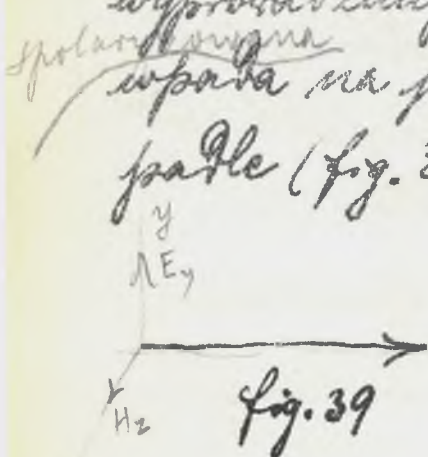 spolaryzowana
wpada na
padle (fig. 3
y
Ey
Hz
fig. 39